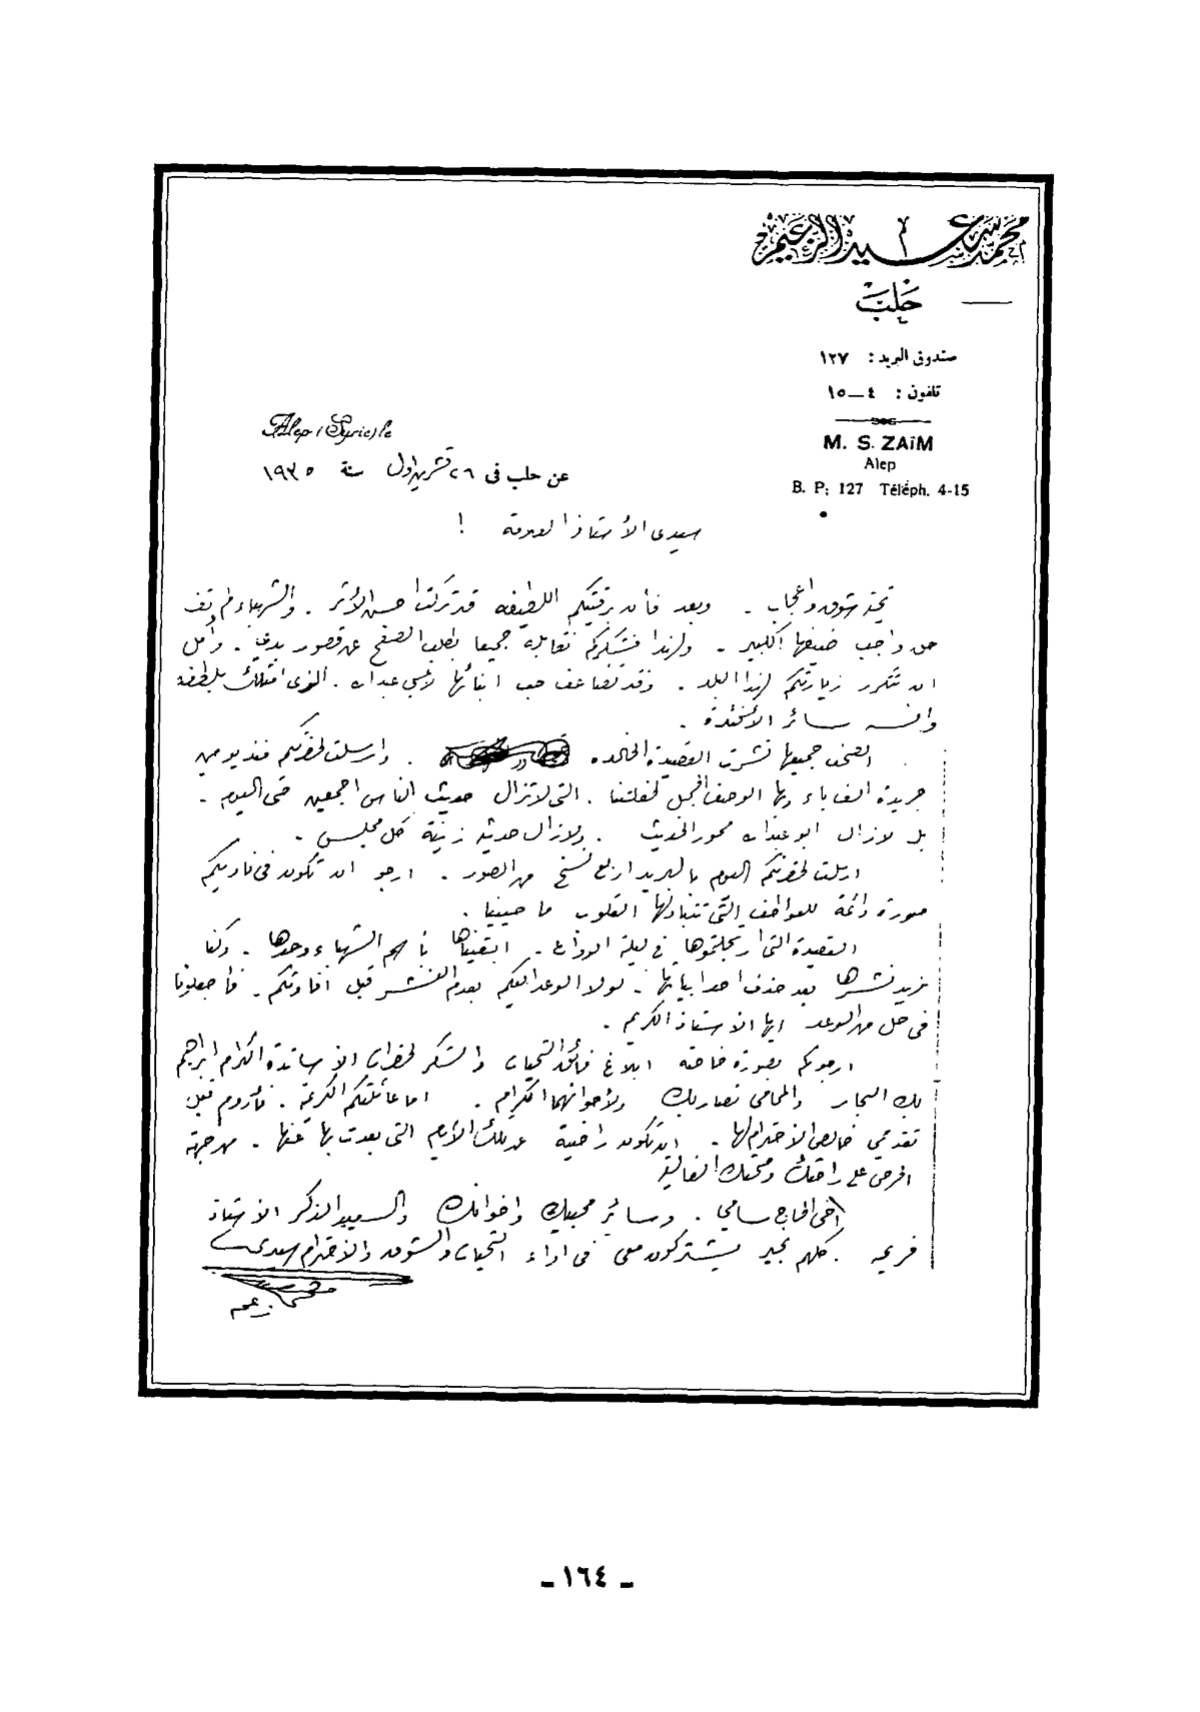 محمد سعيد الزعيم
حلب
صندوق البريد : ١٢٧
تلفون : ٤ — ١٥
M. S. ZAiM
Alep
B. P: 127 Téléph. 4-15
Alep (Syrie) le
عن حلب في ٢٦ تشرين اول سنة ١٩٣٥
سيدي الأستاذ العلامة !
تحية شوق واعجاب . وبعد فأن برقيتكم اللطيفه قد تركت احسن الأثر . والشهباء لم تف
حق واجب ضيفها الكبير . ولهذا فشكركم نقابله جميعا بطلب الصفح عن قصور بدئي . وأمل
ان تتكرر زيارتكم لهذا البلد . وقد تضاعف حب ابنائها لأبي عبدالله . الذي امتلك بلطفه
وانسه سائر الأفئدة .
الصحف جميعها نشرت القصيدة الخالده . وارسلت لحضرتكم منذ يومين
جريدة الف باء وبها الوصف المجمل لحفلتنا . التي لا تزال حديث الناس اجمعين حتى اليوم .
بل لازال ابو عبدالله محور الحديث . ولا زال حديثه زينة كل مجلس .
ارسلت لحضرتكم اليوم بالبريد اربع نسخ من الصور . ارجو ان تكون في ناديكم
صورة دائمة للعواطف التي تتبادلها القلوب ما حيينا .
القصيدة التي ارتجلتموها في ليلة الوداع . ابقيناها باسم الشهباء وحدها . وكنا
نريد نشرها بعد حذف احد ابياتها . لولا الوعد اليكم بعدم النشر قبل افادتكم . فاجعلونا
في حل من الوعد ايها الاستاذ الكريم .
ارجوكم بصورة خاصة ابلاغ فائق التحيات والشكر لحضرات الاساتذة الكرام ابراهيم
بك النجار والمحامي نصار بك ولأخوانهما الكرام . اما عائلتكم الكريمة . فأروم قبل
تقديمي خالص الاحترام لها . ان تكون راضية عن تلك الأيام التي بعدت بها عنها . من جهة
الحرص على راحتك وصحتك الغالية
اخي الحاج سامي . وسائر محبيك واخوانك والسعيد الذكر الاستاذ
. كلهم بخير يشتركون معي في اداء التحيات والشوق والأحترام سيدي
زعيم
ـ ١٦٤ ـ